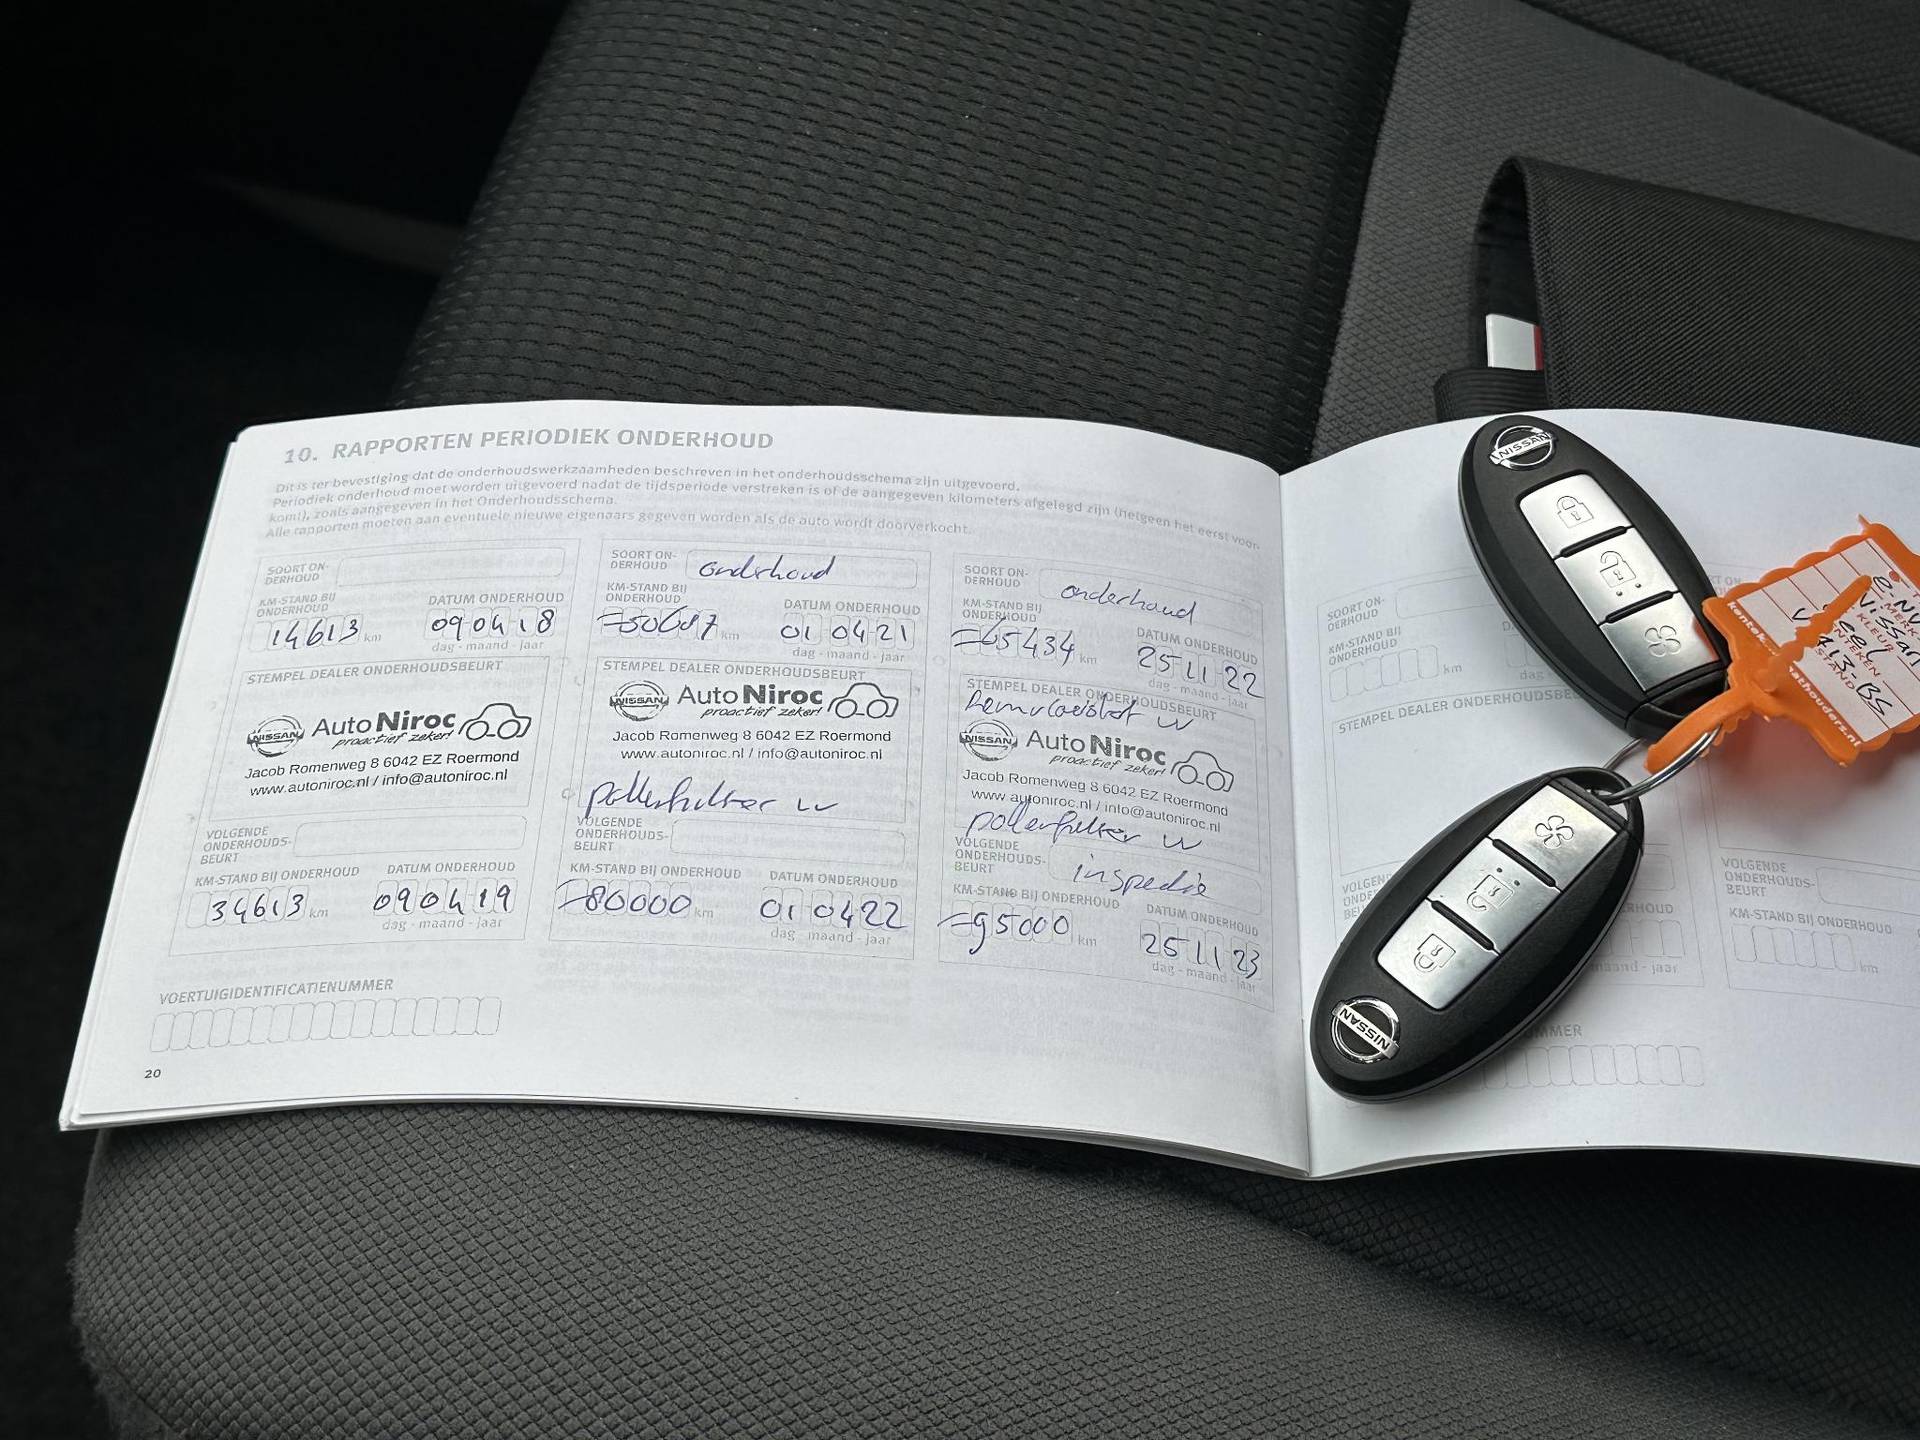 10. RAPPORTEN PERIODIEK ONDERHOUD
Dit is ter bevestiging dat de onderhoudswerkzaamheden beschreven in het onderhoudsschema zijn uitgevoerd.
Periodiek onderhoud moet worden uitgevoerd nadat de tijdsperiode verstreken is of de aangegeven kilometers afgelegd zijn (hetgeen het eerst voor-
komt), zoals aangegeven in het Onderhoudsschema.
Alle rapporten moeten aan eventuele nieuwe eigenaars gegeven worden als de auto wordt doorverkocht.
SOORT ON-
DERHOUD
KM-STAND BIJ
ONDERHOUD
DATUM ONDERHOUD
14613 km
09 04 18
dag - maand - jaar
STEMPEL DEALER ONDERHOUDSBEURT
NISSAN Auto Niroc
proactief zeker!
Jacob Romenweg 8 6042 EZ Roermond
www.autoniroc.nl / info@autoniroc.nl
VOLGENDE
ONDERHOUDS-
BEURT
KM-STAND BIJ ONDERHOUD
DATUM ONDERHOUD
34613 km
09 04 19
dag - maand - jaar
VOERTUIGIDENTIFICATIENUMMER
20
SOORT ON-
DERHOUD
onderhoud
KM-STAND BIJ
ONDERHOUD
DATUM ONDERHOUD
km
01 04 21
dag - maand - jaar
STEMPEL DEALER ONDERHOUDSBEURT
NISSAN Auto Niroc
proactief zeker!
Jacob Romenweg 8 6042 EZ Roermond
www.autoniroc.nl / info@autoniroc.nl
pollenfilter w
VOLGENDE
ONDERHOUDS-
BEURT
KM-STAND BIJ ONDERHOUD
DATUM ONDERHOUD
=80000 km
01 04 22
dag - maand - jaar
SOORT ON-
DERHOUD
onderhoud
KM-STAND BIJ
ONDERHOUD
DATUM ONDERHOUD
=65434 km
25 11 22
dag - maand - jaar
STEMPEL DEALER ONDERHOUDSBEURT
Remvloeistof w
NISSAN Auto Niroc
proactief zeker!
Jacob Romenweg 8 6042 EZ Roermond
www.autoniroc.nl / info@autoniroc.nl
pollenfilter w
VOLGENDE
ONDERHOUDS-
BEURT
inspectie
KM-STAND BIJ ONDERHOUD
DATUM ONDERHOUD
=95000 km
25 11 23
dag - maand - jaar
SOORT ON-
DERHOUD
KM-STAND BIJ
ONDERHOUD
km
STEMPEL DEALER ONDERHOUDSBEU
VOLGENDE
ONDERHOUDS-
BEURT
KM-STAND BIJ ONDERHOUD
km
maand - jaar
NISSAN
NISSAN
MERK
KLEUR
Nissan